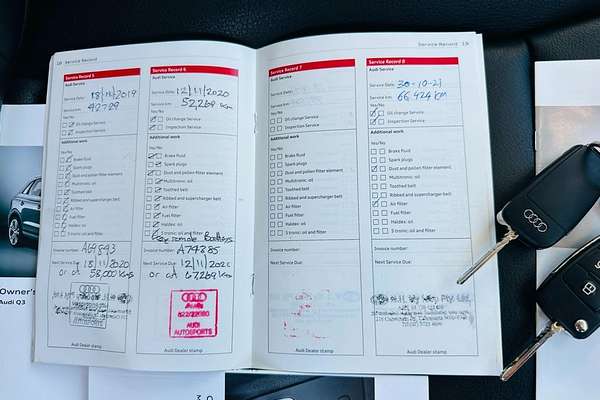 18 Service Record
Service Record 5
Audi Service
Service Date: 18/11/2019
Service km: 42729
Yes/No
Oil change Service
Inspection Service
Additional work
Yes/No
Brake fluid
Spark plugs
Dust and pollen filter element
Multitronic: oil
Toothed belt
Ribbed and supercharger belt
Air filter
Fuel filter
Haldex: oil
S tronic: oil and filter
Invoice number:
Next Service Due: 18/11/2020
or at 58,000 kms
Audi Dealer stamp
Service Record 6
Audi Service
Service Date: 12/11/2020
Service km: 52,269 km
Yes/No
Oil change Service
Inspection Service
Additional work
Yes/No
Brake fluid
Spark plugs
Dust and pollen filter element
Multitronic: oil
Toothed belt
Ribbed and supercharger belt
Air filter
Fuel filter
Haldex: oil
S tronic: oil and filter
Key remote Battery
Invoice number:
Next Service Due: 12/11/2021
or at 67,269 km
Audi
AUDI
AUTOSPORTS
Audi Dealer stamp
Service Record 19
Service Record 7
Audi Service
Service Date:
Service km:
Yes/No
Oil change Service
Inspection Service
Additional work
Yes/No
Brake fluid
Spark plugs
Dust and pollen filter element
Multitronic: oil
Toothed belt
Ribbed and supercharger belt
Air filter
Fuel filter
Haldex: oil
S tronic: oil and filter
Invoice number:
Next Service Due:
Audi Dealer stamp
Service Record 8
Audi Service
Service Date: 30-10-21
Service km: 66,424 km
Yes/No
Oil change Service
Inspection Service
Additional work
Yes/No
Brake fluid
Spark plugs
Dust and pollen filter element
Multitronic: oil
Toothed belt
Ribbed and supercharger belt
Air filter
Fuel filter
Haldex: oil
S tronic: oil and filter
Invoice number:
Next Service Due:
Audi Dealer stamp
Owner's
Audi Q3